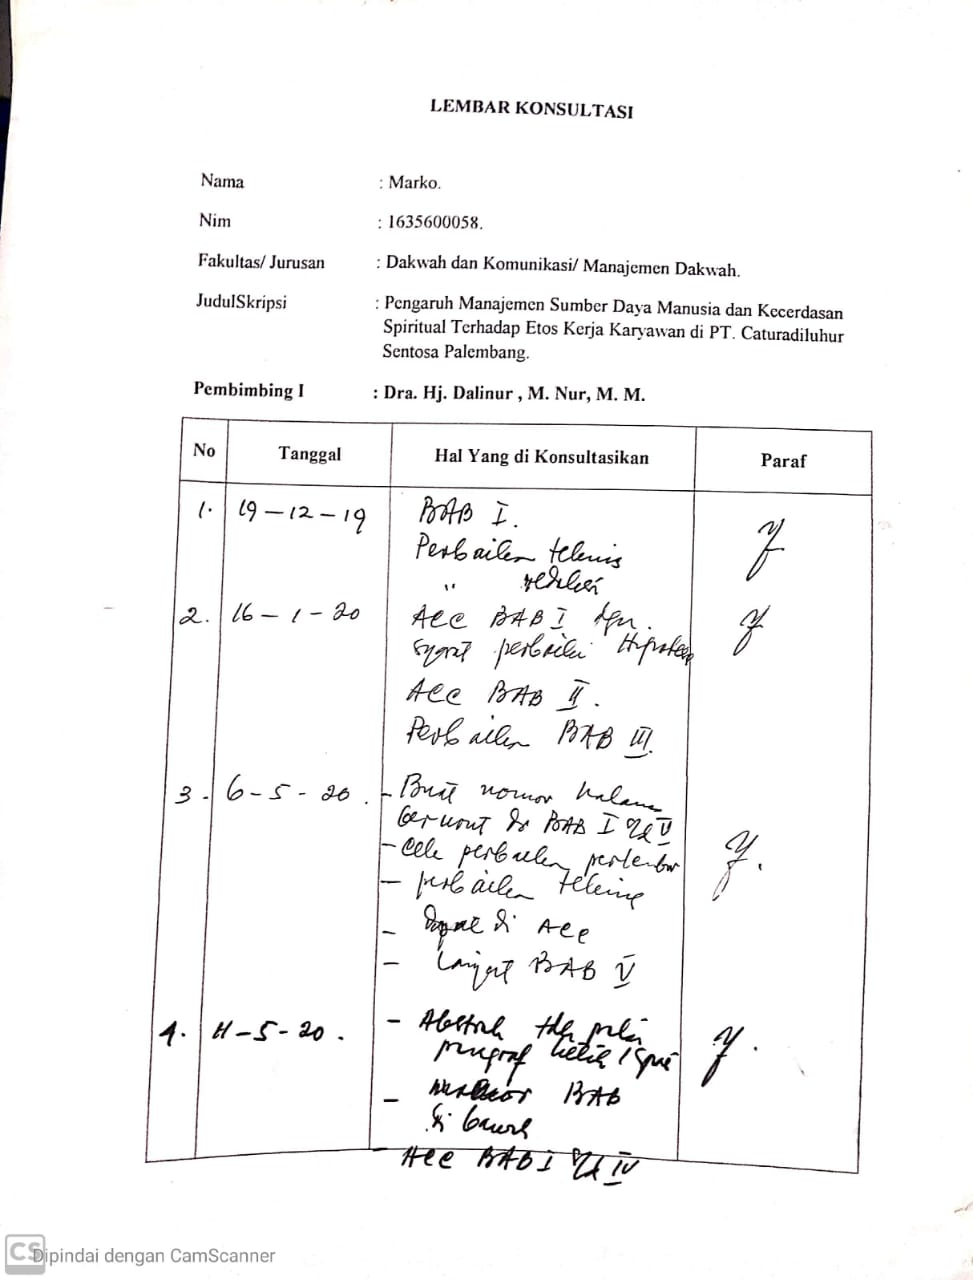 LEMBAR KONSULTASI
Nama : Marko.
Nim : 1635600058.
Fakultas/ Jurusan : Dakwah dan Komunikasi/ Manajemen Dakwah.
JudulSkripsi : Pengaruh Manajemen Sumber Daya Manusia dan Kecerdasan
Spiritual Terhadap Etos Kerja Karyawan di PT. Caturadiluhur
Sentosa Palembang.
Pembimbing I : Dra. Hj. Dalinur , M. Nur, M. M.
No Tanggal Hal Yang di Konsultasikan Paraf
1. 19-12-19 BAB I.
Perbaikan teknis
" redaksi
2. 16-1-20 Acc BAB I dgn.
syarat perbaiki
Acc BAB II.
Perbaikan BAB III.
3. 6-5-20. - Buat nomor
BAB I V
- perbaikan
- perbaikan teknis
- dapat di Acc
- Lanjut BAB V
4. -5-20. - Abstrak
1
- BAB
di bawah
- Acc BAB I IV
CS Dipindai dengan CamScanner